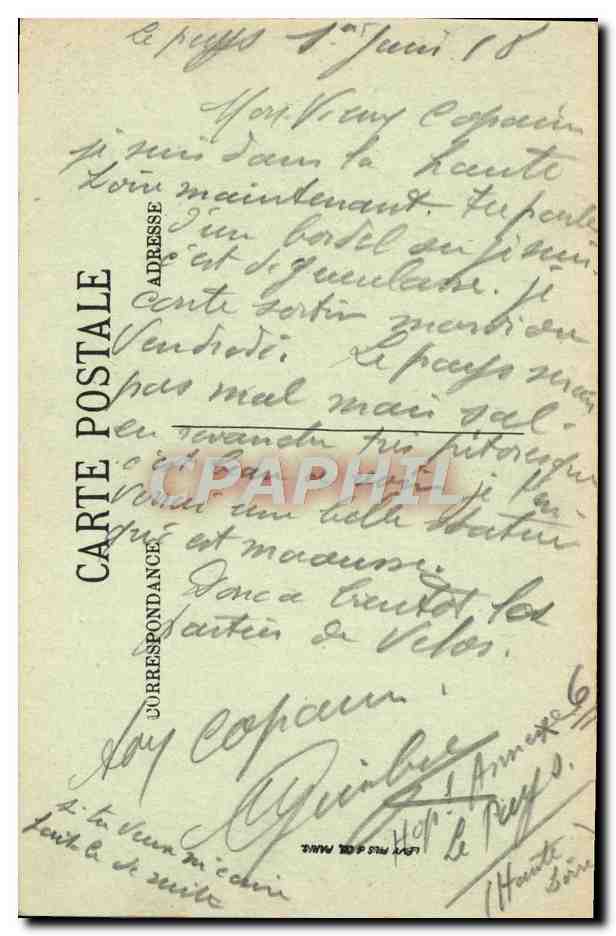 Le puys 1er Juin 18
Mon Vieux Copain
je suis dans la haute
Loire maintenant. Tu parle
d'un bordel ou je suis
c'est degueulasse. je
conte sortir mardi ou
Vendredi. Le pays serai
pas mal mais sal.
en revanche très pitoresque
c'est beau a voir je t'en
verrai une belle statue
qui est maousse.
Donc a bientôt les
parties de Velos.
Ton Copain.
Hop! Annexe 6
Le Puys.
(Haute
Loire)
si tu veux m'ecrire
fait le de suite
CARTE POSTALE
CORRESPONDANCE
ADRESSE
LEVY FILS & CIE, PARIS.
CPAPHIL